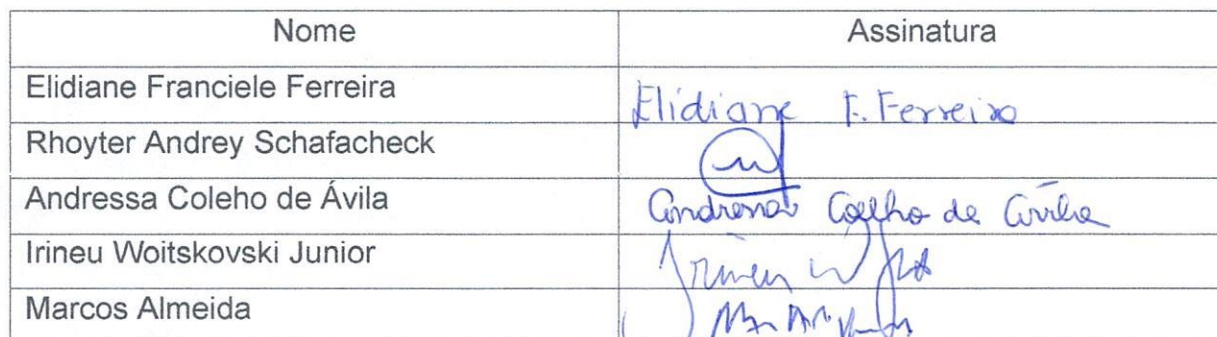 Nome Assinatura
Elidiane Franciele Ferreira Elidiane F. Ferreira
Rhoyter Andrey Schafacheck
Andressa Coleho de Ávila Andressa Coelho de Ávila
Irineu Woitskovski Junior Irineu W
Marcos Almeida